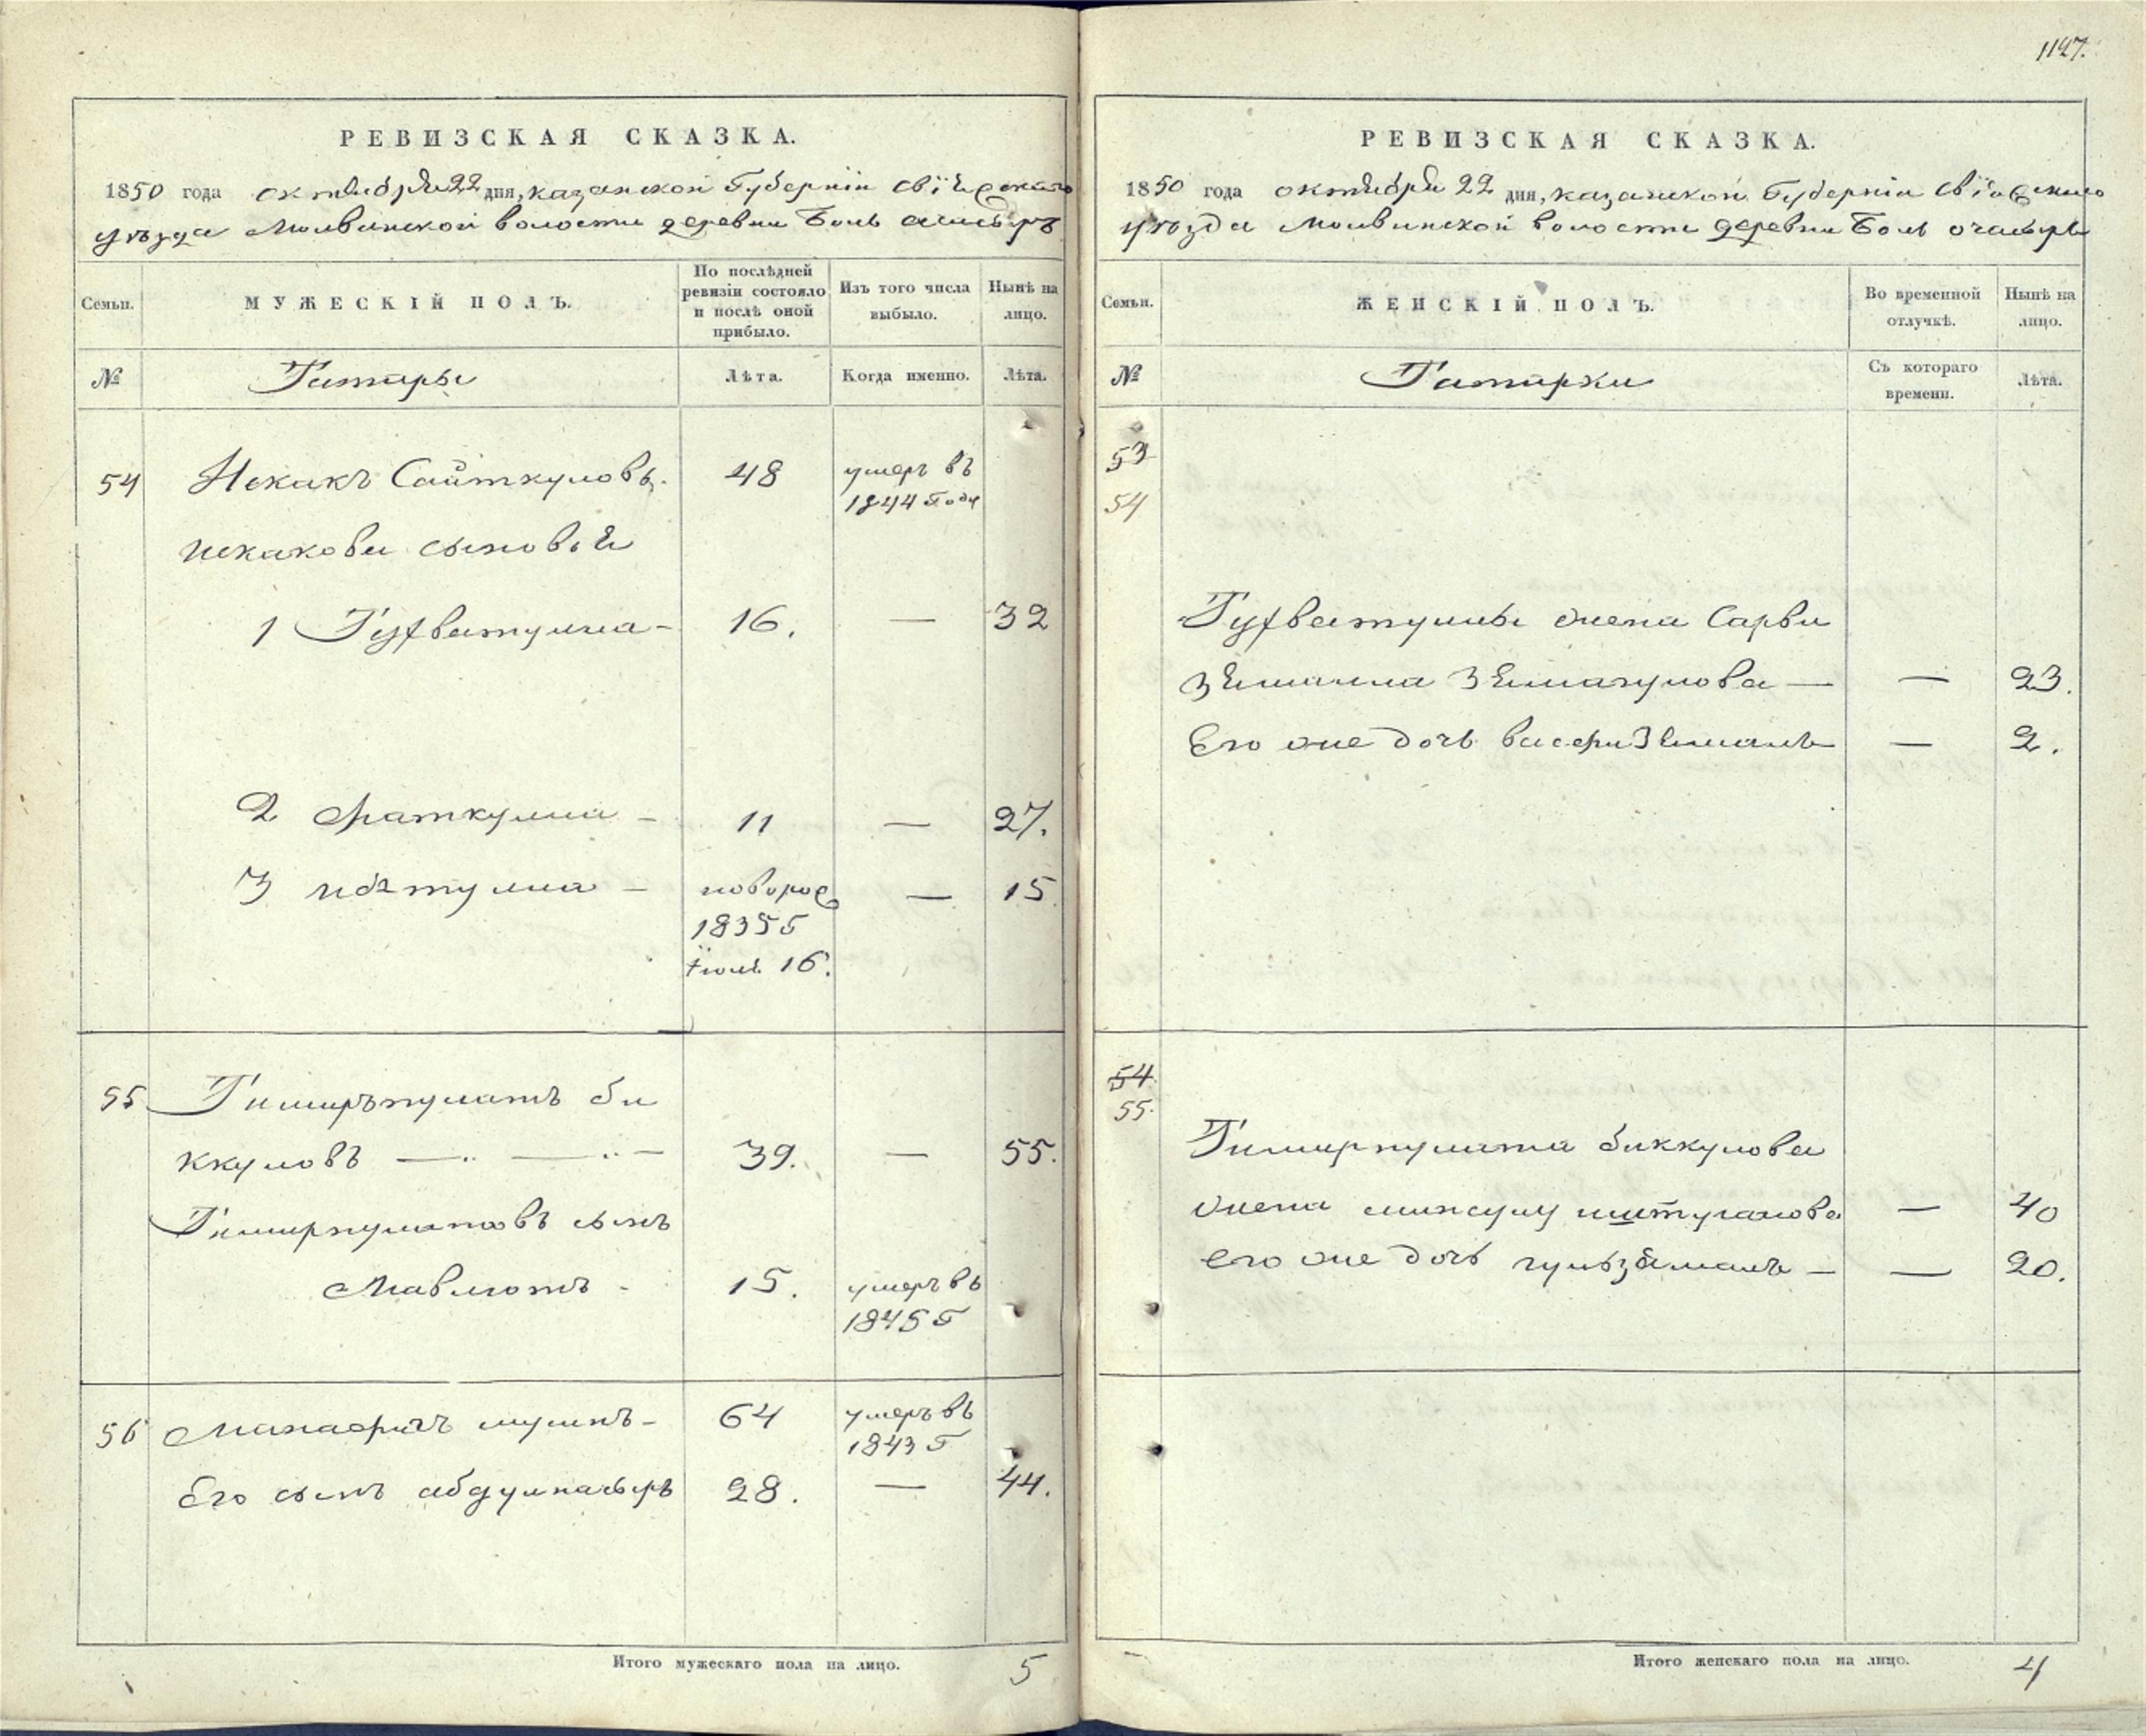 1127.
РЕВИЗСКАЯ СКАЗКА.
1850 года октября 22 дня, казанской Губерніи свіяжскаго
уѣзда Молвинской волости деревни Боль ачасырь
Семьи. МУЖЕСКІЙ ПОЛЪ. По послѣдней ревизіи состояло и послѣ оной прибыло. Изъ того числа выбыло. Нынѣ на лицо.
№ Татары Лѣта. Когда именно. Лѣта.
54 Искакъ Сайткуловъ. 48 умеръ въ
1844 Году
искакова сыновья
1 Гутфатулла - 16. — 32
2 Фаткулла - 11 — 27.
3 — новорож — 15
1835 Г
Іюля 16.
55 Тимирпулатъ би
ккуловъ — — 39. — 55.
Тимирпулатовъ сынъ
Мавлютъ - 15. умеръ въ
1845 Г
56 Манасыпъ - 64 умеръ въ
1843 Г
Его сынъ 28. — 44.
Итого мужескаго пола на лицо. 5
РЕВИЗСКАЯ СКАЗКА.
1850 года октября 22 дня, казанской Губерніи свіяжскаго
уѣзда Молвинской волости деревни Боль очасырь
Семьи. ЖЕНСКІЙ ПОЛЪ. Во временной отлучкѣ. Нынѣ на лицо.
№ Татарки Съ котораго времени. Лѣта.
53
54
Гутфатуллы жена Сарви
— — 23.
Его же дочь — 2.
54.
55.
Тимирпулата биккулова
жена — 40
его же дочь гульзямалъ — — 20.
Итого женскаго пола на лицо. 4